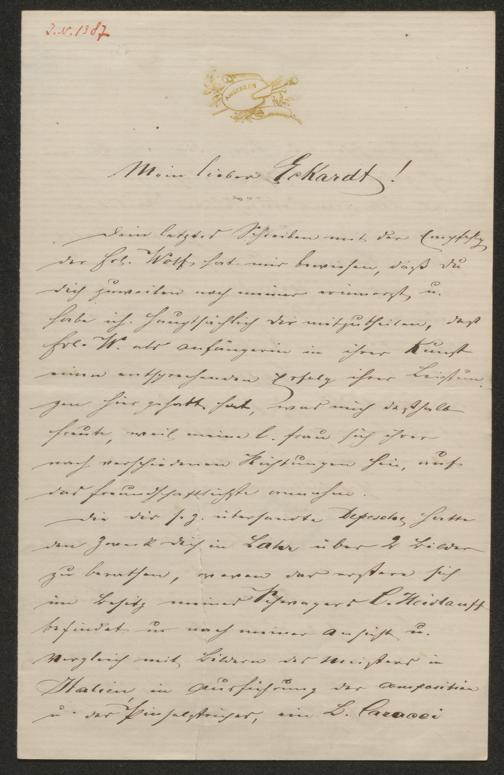 J.N. 1387
Mein lieber Eckardt!
Dein letztes Schreiben mit der Empfehlg
der Frl. Wolff hat mir bewiesen, daß du
dich zuweilen noch meiner erinnerst, u.
habe ich hauptsächlich dir mitzutheilen, daß
Frl. W. als Anfängerin in ihrer Kunst
einen entsprechenden Erfolg ihrer Leistun
gen hier gehabt hat, was mich deßhalb
freute, weil meine l. Frau sich ihrer
nach verschiedenen Richtungen hin, auf
das freundschaftlichste annahm.
Die dir s. Z. übersandte Depesche hatte
den Zweck dich in Lahr über 2 Bilder
zu berathen, wovon das erstere sich
im Besitz meines Schwagers C.
befindet u. nach meiner Ansicht u.
Vergleich mit Bildern des Meisters in
Italien, in Ausführung der Composition
u. des Pinselstriches, ein L. Caracci